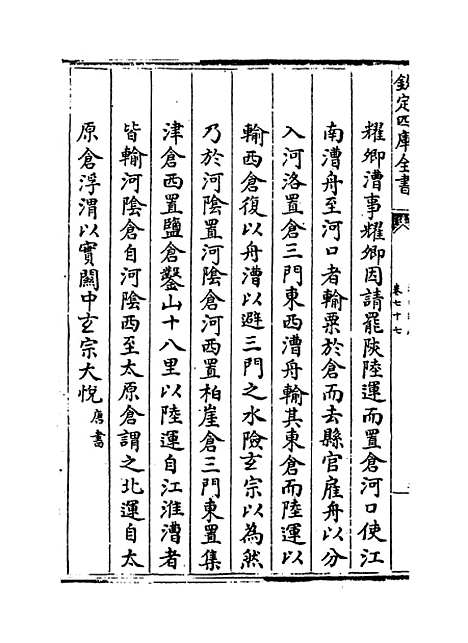 欽定四庫全書
卷七十七
耀卿漕事耀卿因請罷陝陸運而置倉河口使江
南漕舟至河口者輸粟於倉而去縣官雇舟以分
入河洛置倉三門東西漕舟輸其東倉而陸運以
輸西倉復以舟漕以避三門之水險玄宗以為然
乃於河陰置河陰倉河西置柏崖倉三門東置集
津倉西置鹽倉鑿山十八里以陸運自江淮漕者
皆輸河陰倉自河陰西至太原倉謂之北運自太
原倉浮渭以實關中玄宗大悅唐書